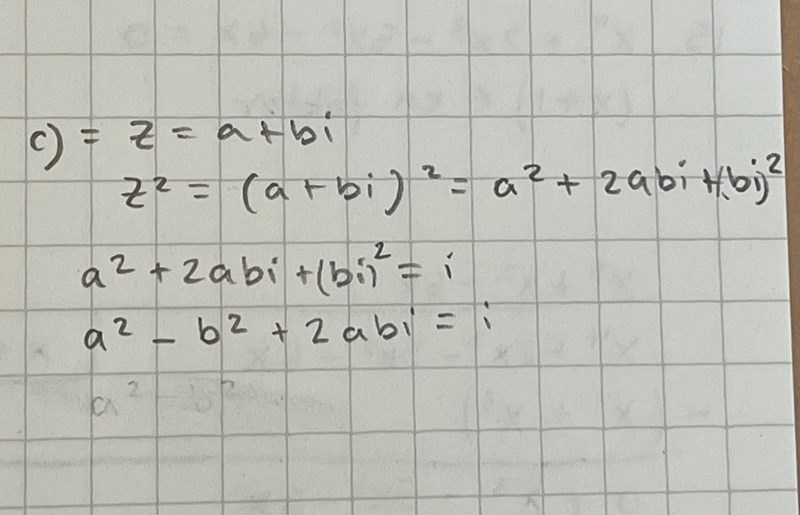 c) = z = a+bi
z² = (a+bi)² = a² + 2abi +(bi)²
a² + 2abi +(bi)² = i
a² - b² + 2abi = i